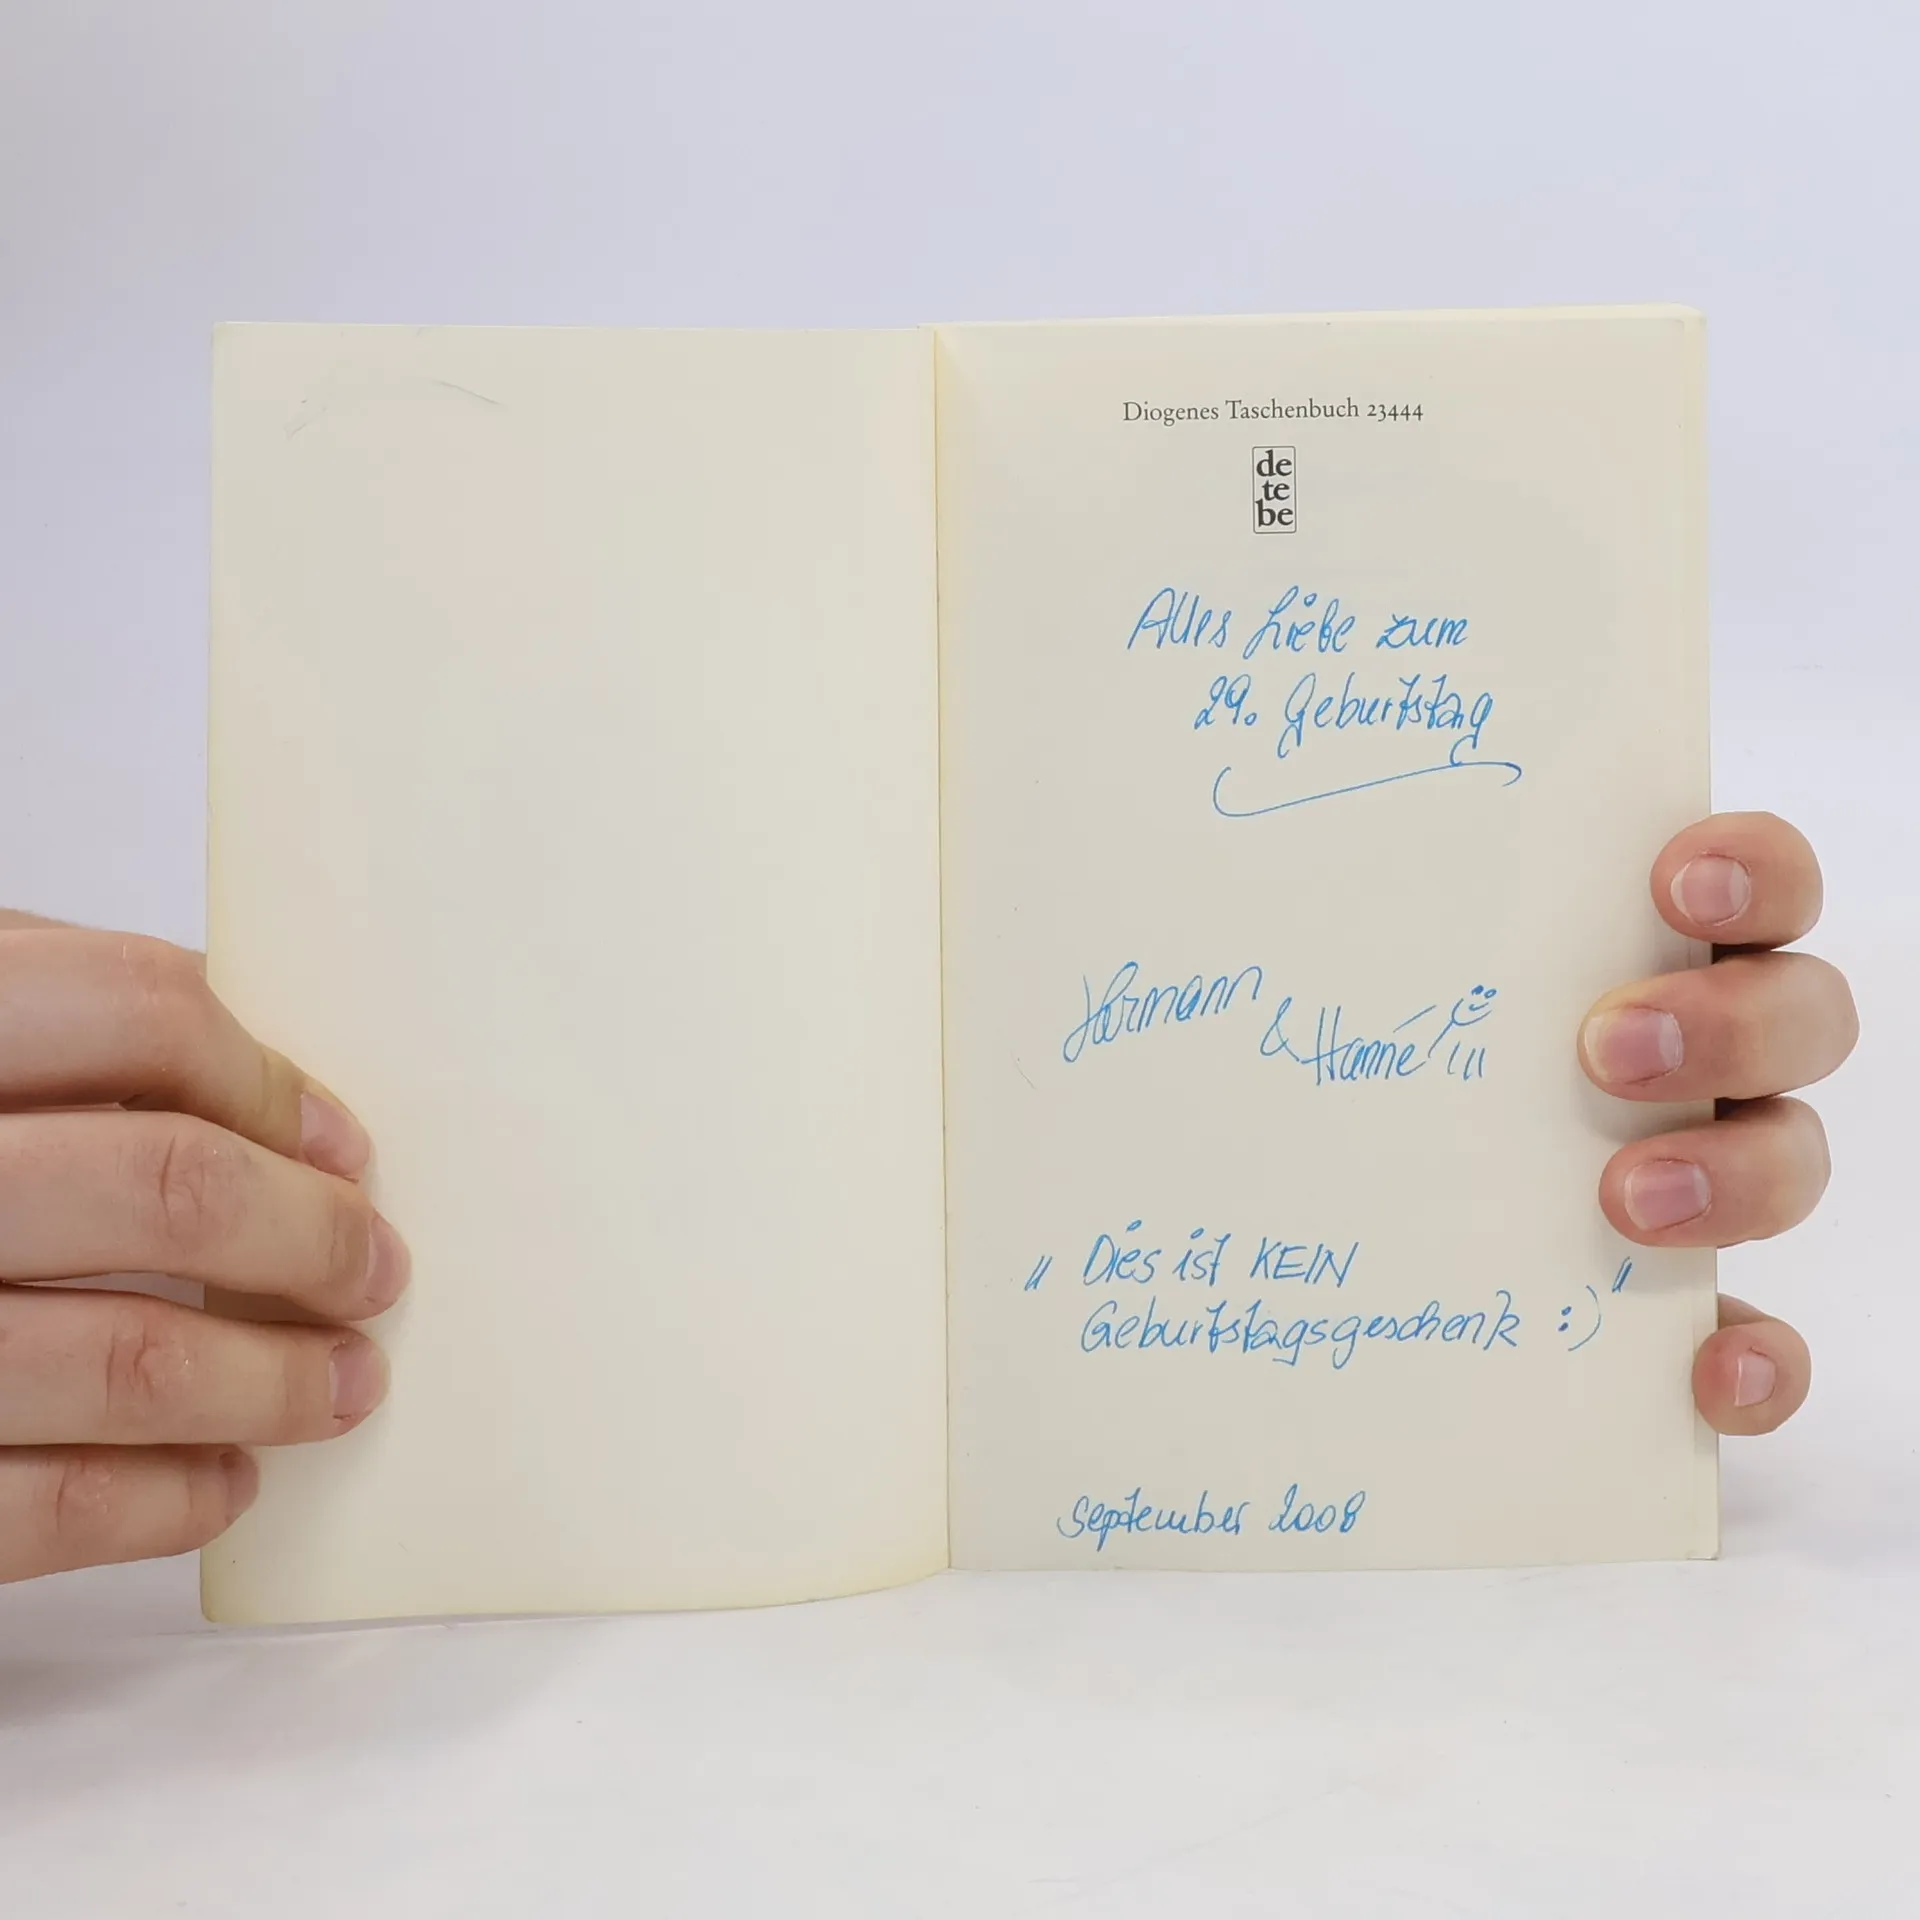 Diogenes Taschenbuch 23444
de
te
be
Alles Liebe zum
29. Geburtstag
Hermann & Hanne
„ Dies ist KEIN
Geburtstagsgeschenk :) "
September 2008